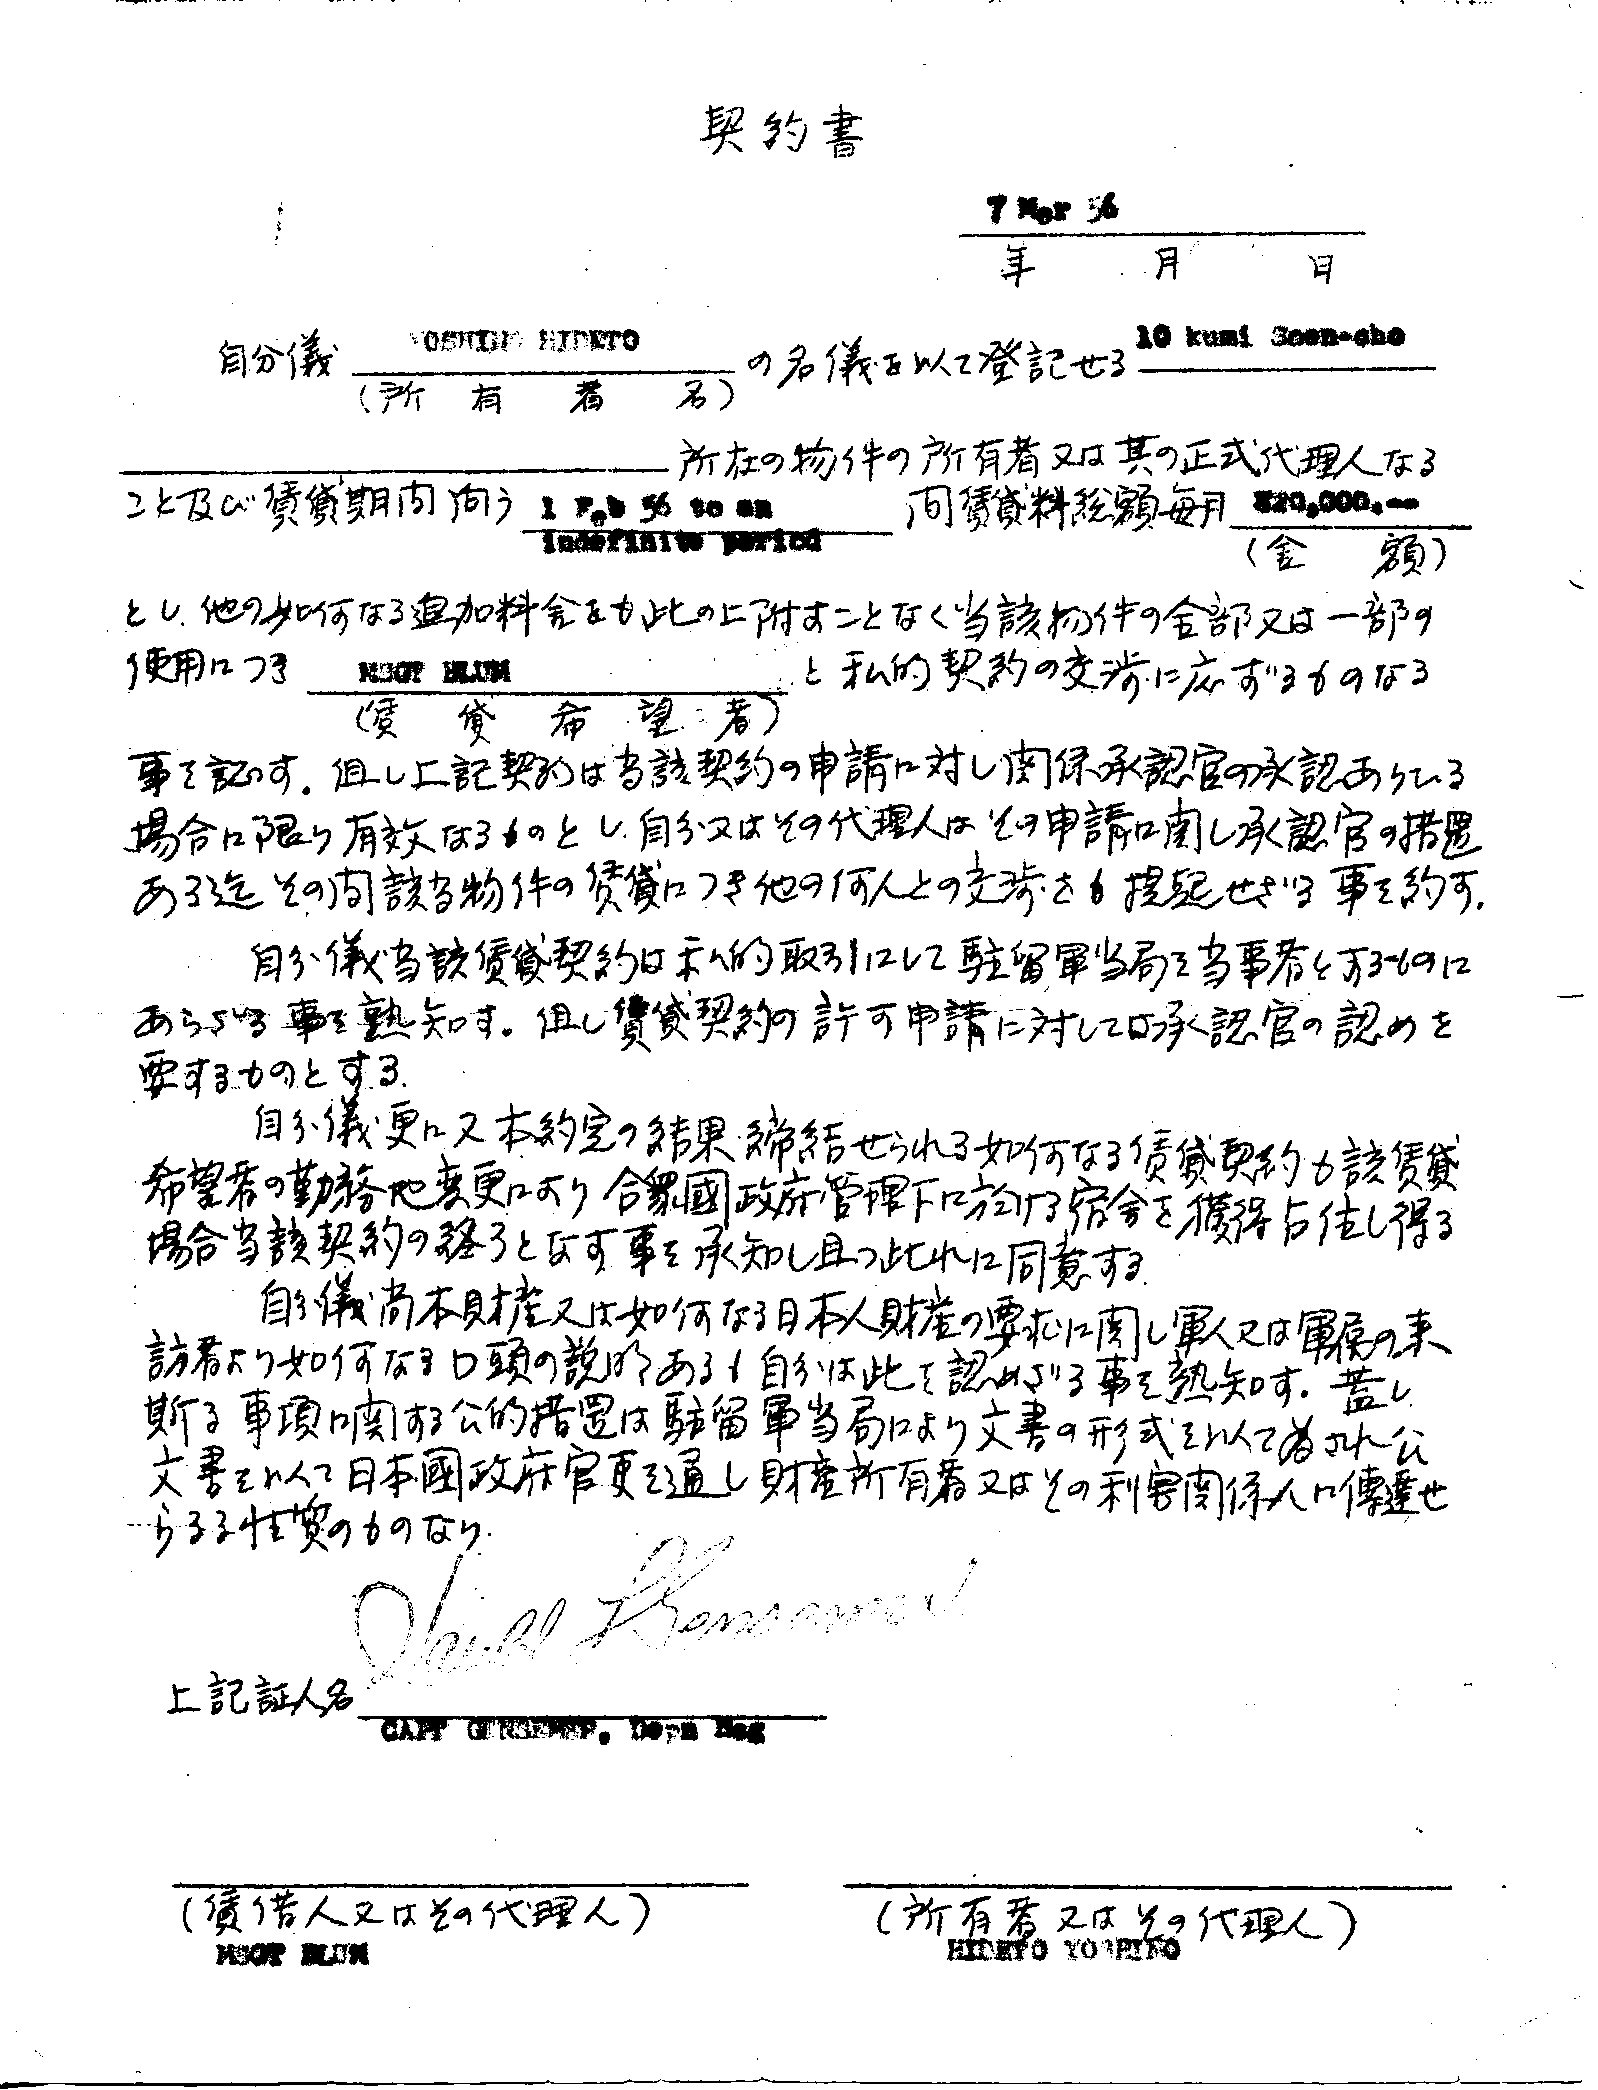 契約書
7 Mar 56
年 月 日
自分儀 YOSHINO HIDETO の名儀を以て登記せる 10 kumi Soen-cho
(所有者名)
所在の物件の所有者又は其の正式代理人なる
こと及び賃貸期間向う 1 Feb 56 to an 間賃貸料総額毎月 ¥20,000.--
indefinite period
(金額)
とし、他の如何なる追加料金をも此の上附すことなく当該物件の全部又は一部の
使用につき MSGT BLUM と私的契約の交渉に応ずるものなる
(賃貸希望者)
事を証す。但し上記契約は当該契約の申請に対し関係承認官の承認ありたる
場合に限り有効なるものとし、自分又はその代理人はその申請に関し承認官の措置
ある迄その間該当物件の賃貸につき他の何人との交渉をも提起せざる事を約す。
自分儀当該賃貸契約は私的取引にして駐留軍当局を当事者とするものに
あらざる事を熟知す。但し賃貸契約の許可申請に対しては承認官の認めを
要するものとする。
自分儀更に又本約定の結果締結せられる如何なる賃貸契約も該賃貸
希望者の勤務地変更により合衆國政府管理下に於ける宿舎を獲得占住し得る
場合当該契約の終了となす事を承知し且つ此れに同意する。
自分儀尚本財産又は如何なる日本人財産の要求に関し軍人又は軍属の来
訪者より如何なる口頭の説明あるも自分は此を認めざる事を熟知す。蓋し
斯る事項に関する公的措置は駐留軍当局により文書の形式を以て為され公
文書を以て日本國政府官吏を通し財産所有者又はその利害関係人に傳達せ
らるる性質のものなり。
上記証人名
CAPT
(賃借人又はその代理人) (所有者又はその代理人)
MSGT BLUM HIDETO YOSHINO